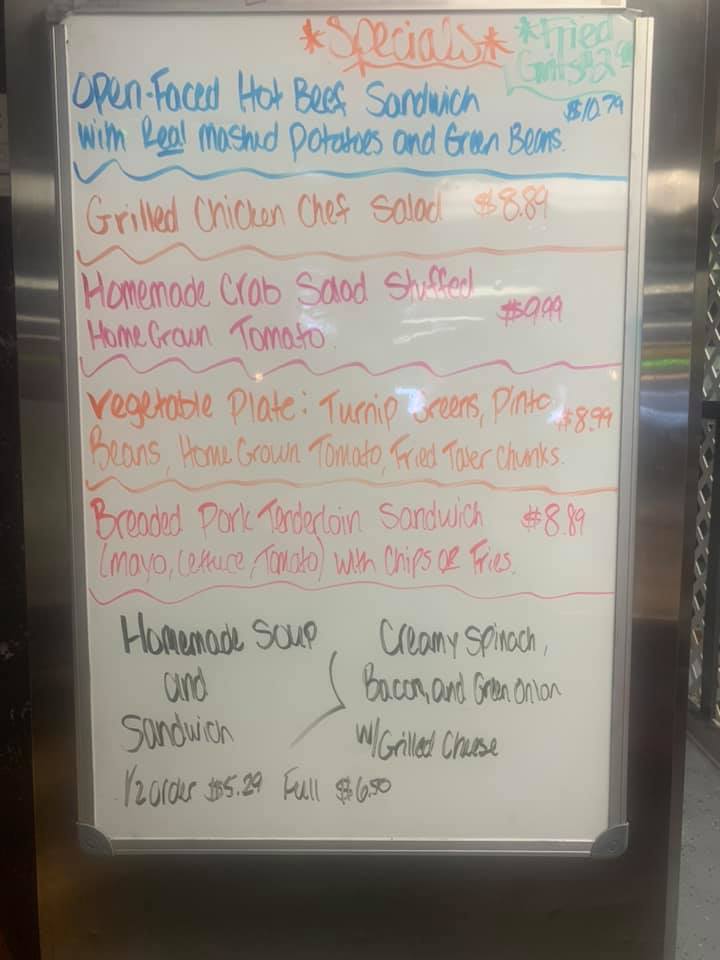 *Specials*
*Fried
Open-Faced Hot Beef Sandwich
$10.79
with Real Mashed Potatoes and Green Beans.
Grilled Chicken Chef Salad $8.89
Homemade Crab Salad Stuffed
$9.99
Home Grown Tomato
Vegetable Plate: Turnip Greens, Pinto
$8.99
Beans, Home Grown Tomato, Fried Tater Chunks.
Breaded Pork Tenderloin Sandwich $8.89
(Mayo, Lettuce, Tomato) with Chips or Fries.
Homemade Soup
and
Sandwich
Creamy Spinach,
Bacon, and Green Onion
w/Grilled Cheese
1/2 order $5.29 Full $6.50